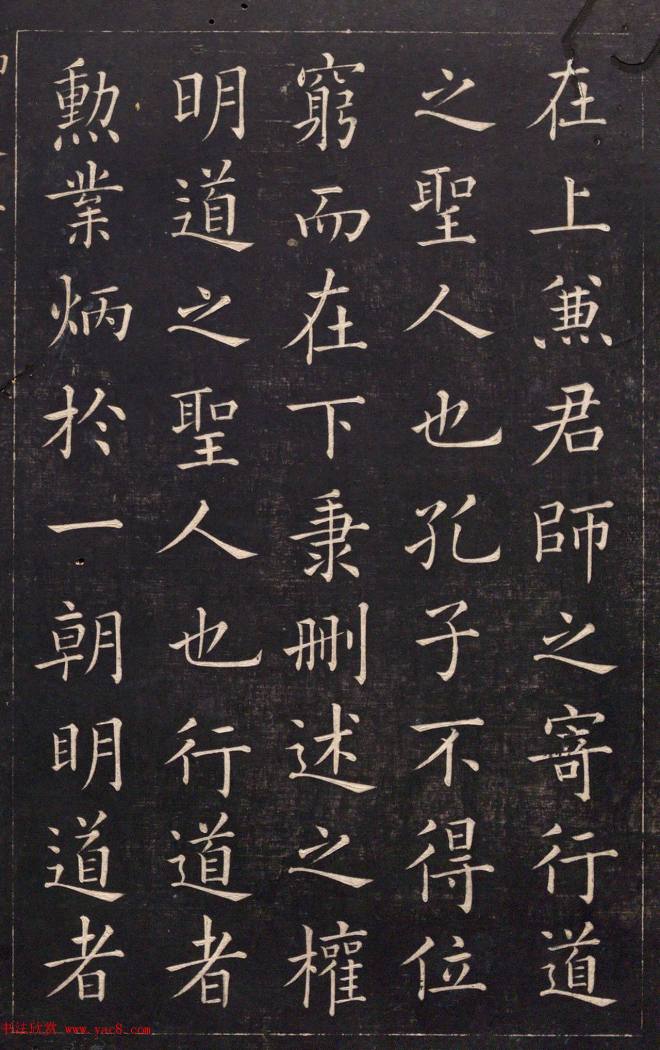 在上兼君師之寄行道
之聖人也孔子不得位
窮而在下秉刪述之權
明道之聖人也行道者
勲業炳於一朝明道者
书法欣赏 www.yac8.com